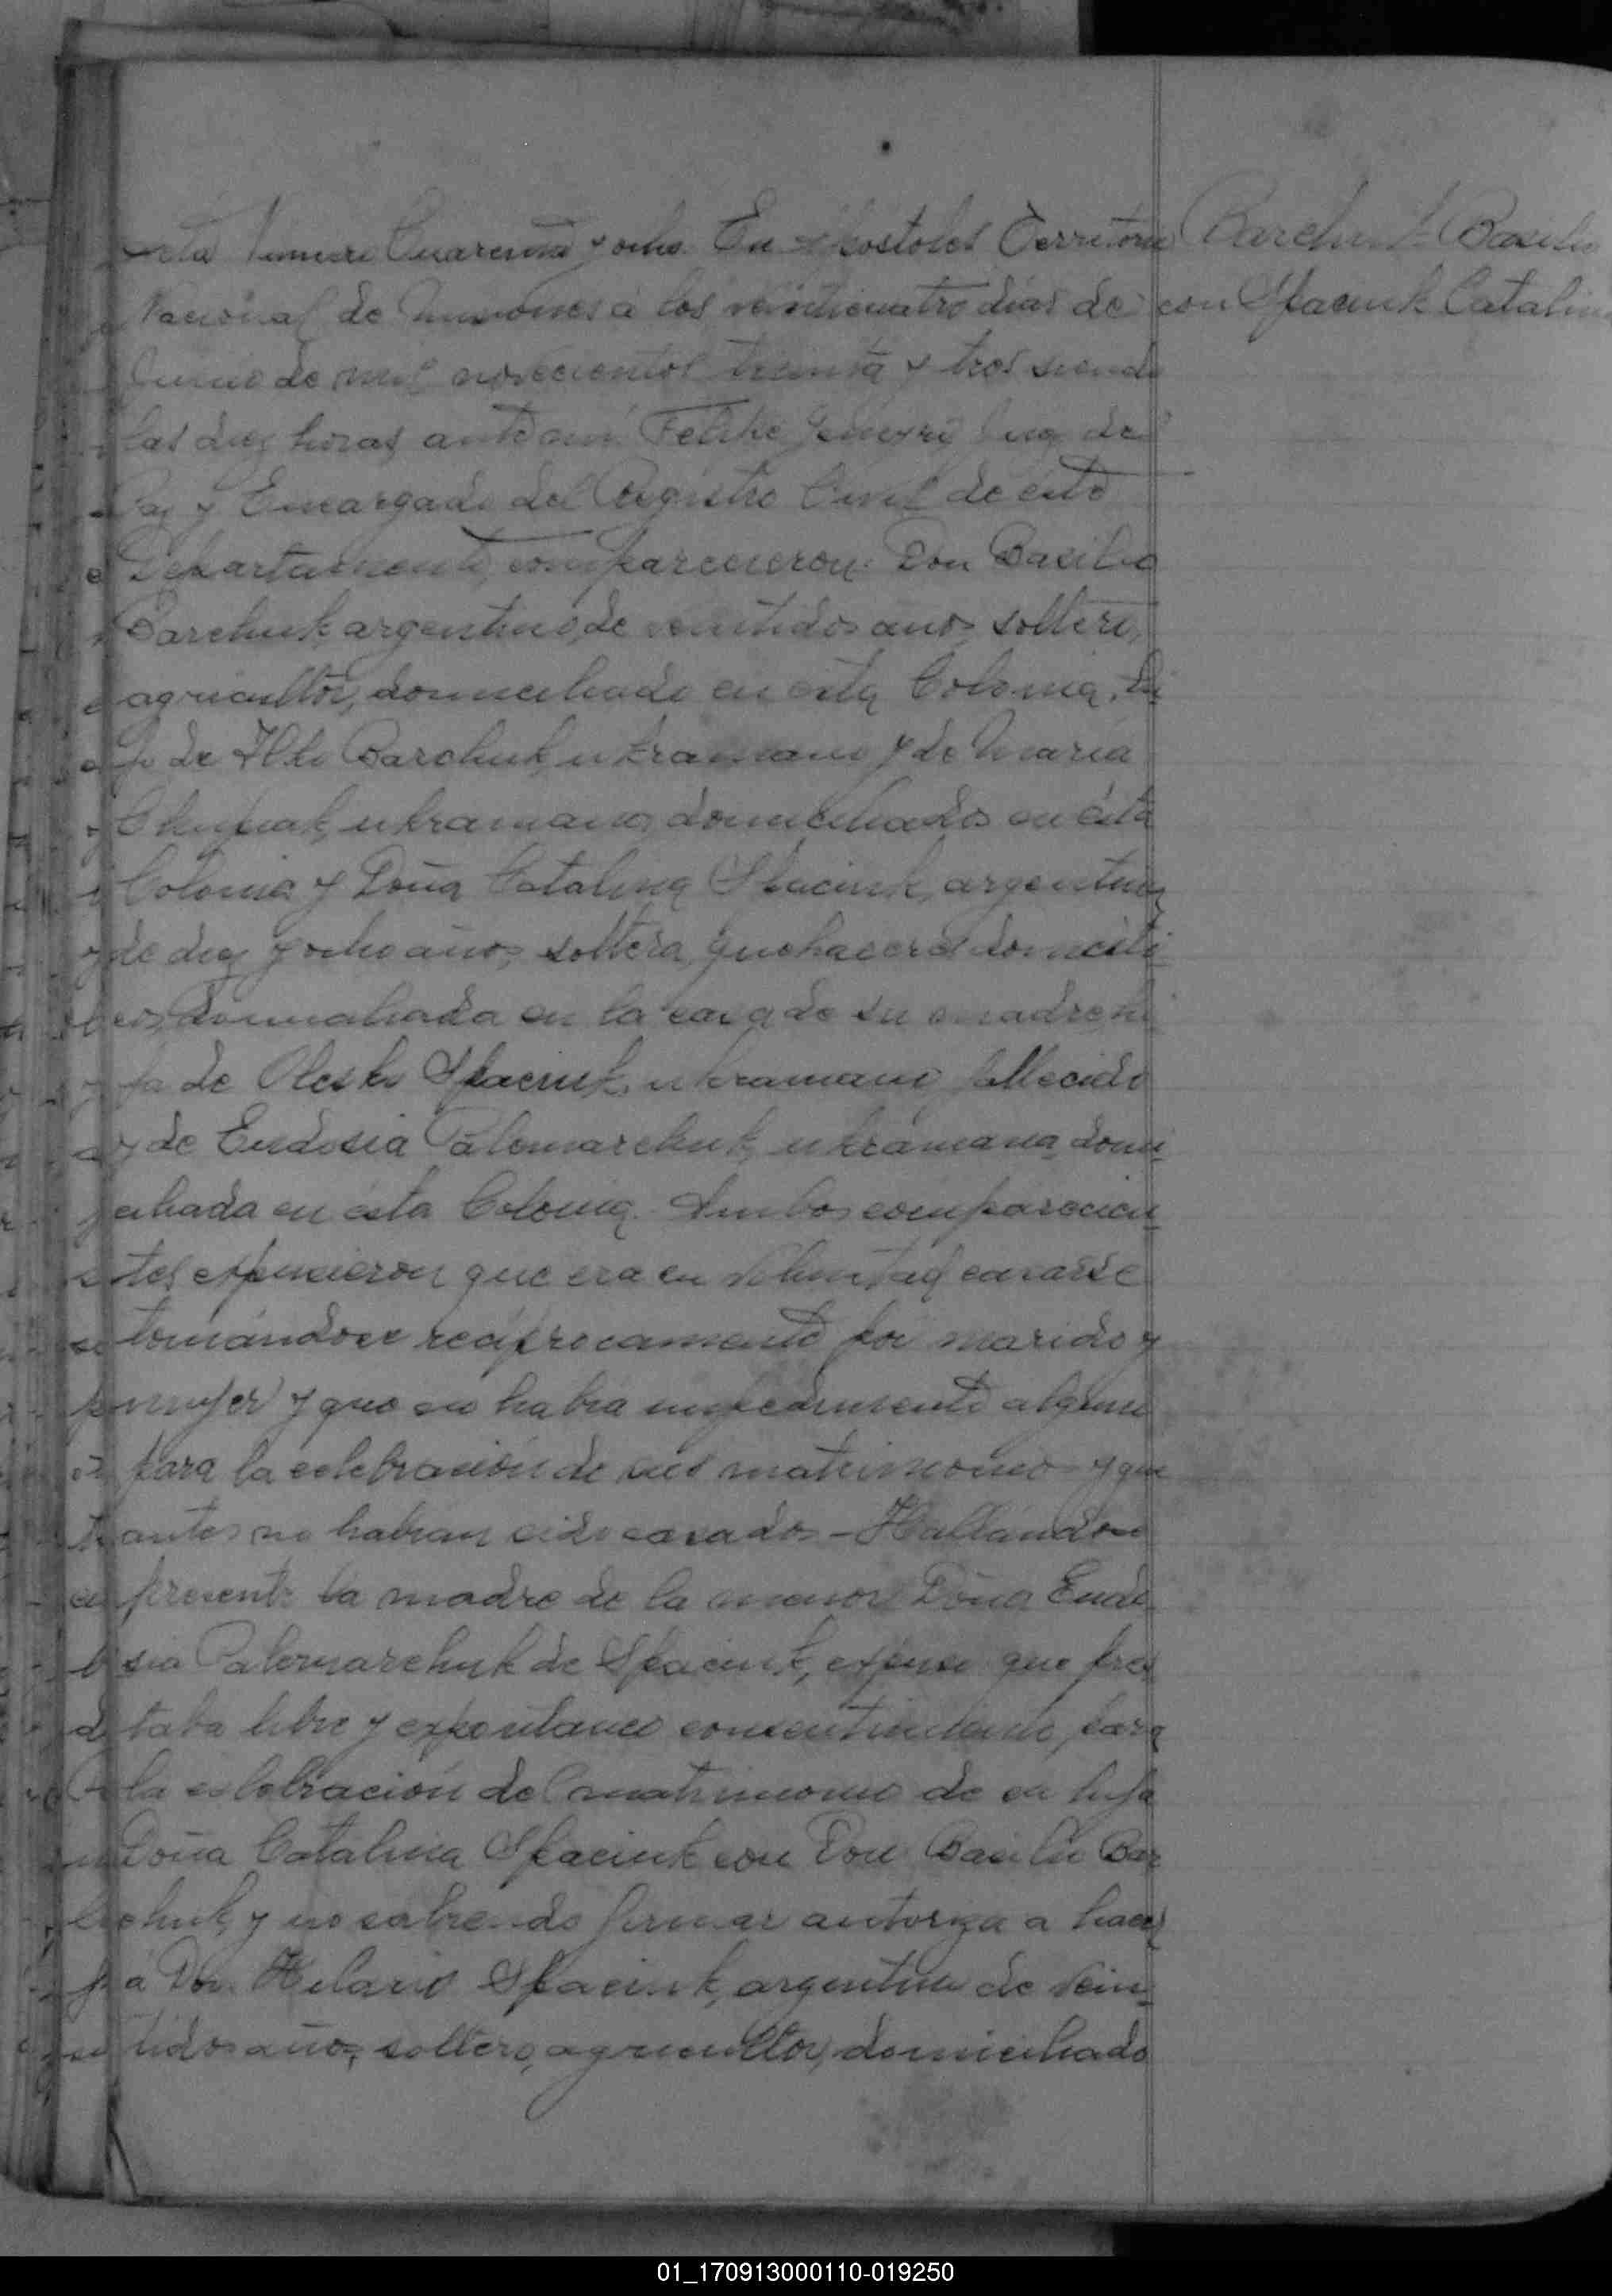 Acta Numero Cuarenta y ocho. En Apostoles Territorio
Nacional de Misiones á los veinticuatro dias de
Junio de mil novecientos treinta y tres siendo
las diez horas ante mi Felipe Juez de
Paz y Encargado del Registro Civil de este
Departamento, comparecieron: Don Basilio
Barchuk, argentino, de veintidos años, soltero,
agricultor, domiciliado en esta Colonia, hi-
jo de Ilko Barchuk, ukraniano y de Maria
ukraniana, domiciliados en ésta
Colonia y Doña Catalina Spaciuk, argentina,
de diez y ocho años, soltera, quehaceres domesti-
cos, domiciliada en la casa de su madre, hi-
ja de Olesko Spaciuk, ukraniano, fallecido
y de Eudosia Palomarchuk, ukraniana, domi-
ciliada en ésta Colonia. Ambos comparecien-
tes expusieron que era su voluntad casarse
tomándose recíprocamente por marido y
mujer y que no habia impedimento alguno
para la celebración de sus matrimonio y que
antes no habian sido casados - Hallandose
presente la madre de la menor Doña Eudo-
sia Palomarchuk de Spaciuk, expuso que pres-
taba libre y expontaneo consentimiento, para
la celebración del matrimonio de su hija
Doña Catalina Spaciuk con Don Basilio Bar-
chuk, y no sabiendo firmar autoriza a hacer
á Don Hilario Spaciuk, argentino de vein-
tidos años, soltero, agricultor, domiciliado
Barchuk Basilio
con Spaciuk Catalina
01_170913000110-019250